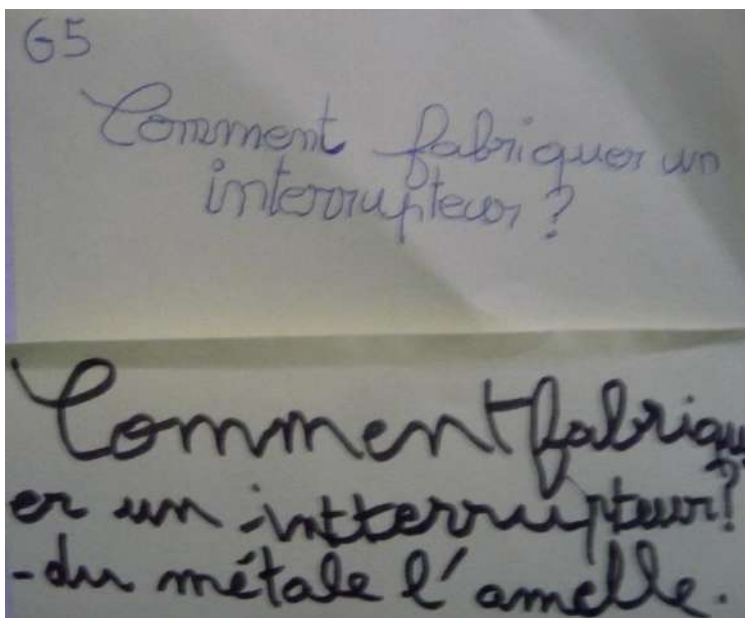 G5
Comment fabriquer un
interrupteur ?
Comment fabriqu
er un intterrupteur?
-du métale l'amelle.